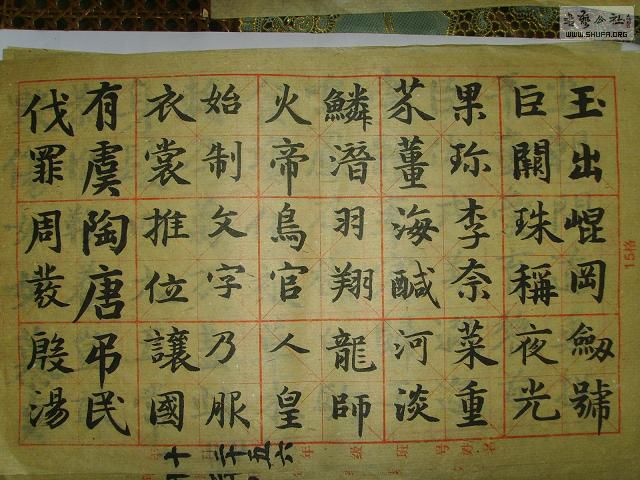 玉出崐岡劒號
巨闕珠稱夜光
果珍李奈菜重
芥薑海醎河淡
鱗潛羽翔龍師
火帝鳥官人皇
始制文字乃服
衣裳推位讓國
有虞陶唐吊民
伐罪周發殷湯
15格
WWW.SHUFA.ORG